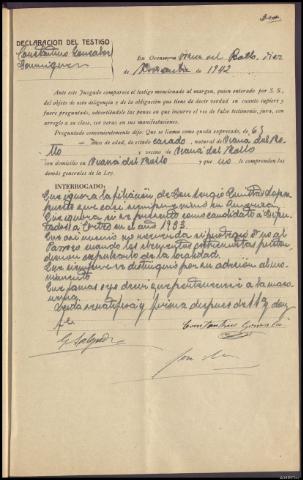 DECLARACION DEL TESTIGO
Constantino Gonzalez
Dominguez
En Viana del Bollo, diez
de Diciembre de 1942
Ante este Juzgado comparece el testigo mencionado al margen, quien enterado por S. S.
del objeto de esta diligencia y de la obligación que tiene de decir verdad en cuanto supiere y
fuere preguntado, advirtiéndole las penas en que incurre el reo de falso testimonio, jura, con
arreglo a su clase, ser veraz en sus manifestaciones.
Preguntado convenientemente dijo: Que se llama como queda expresado, de 63
años de edad, de estado casado, natural de Viana del Bo-
llo y vecino de Viana del Bollo
con domicilio en Viana del Bollo y que no le comprenden las
demás generales de la Ley.
INTERROGADO:
Que ignora la filiación de Don Luzgio
puesto que casi siempre
Que ignora si se presentó como candidato a Dipu-
tados a Cortes en el año 1933.
Que así mismo no recuerda si protegió o no al
Parroco cuando los elementos extremistas
su expulsión de la localidad.
Que siempre se distinguió por su adhesión al mo-
vimiento
Que jamas oyo decir que perteneciera a la maso-
neria.
Leida se ratifica y firma despues de S.Sª doy
fe
Constantino Gonzalez
G. Salgado